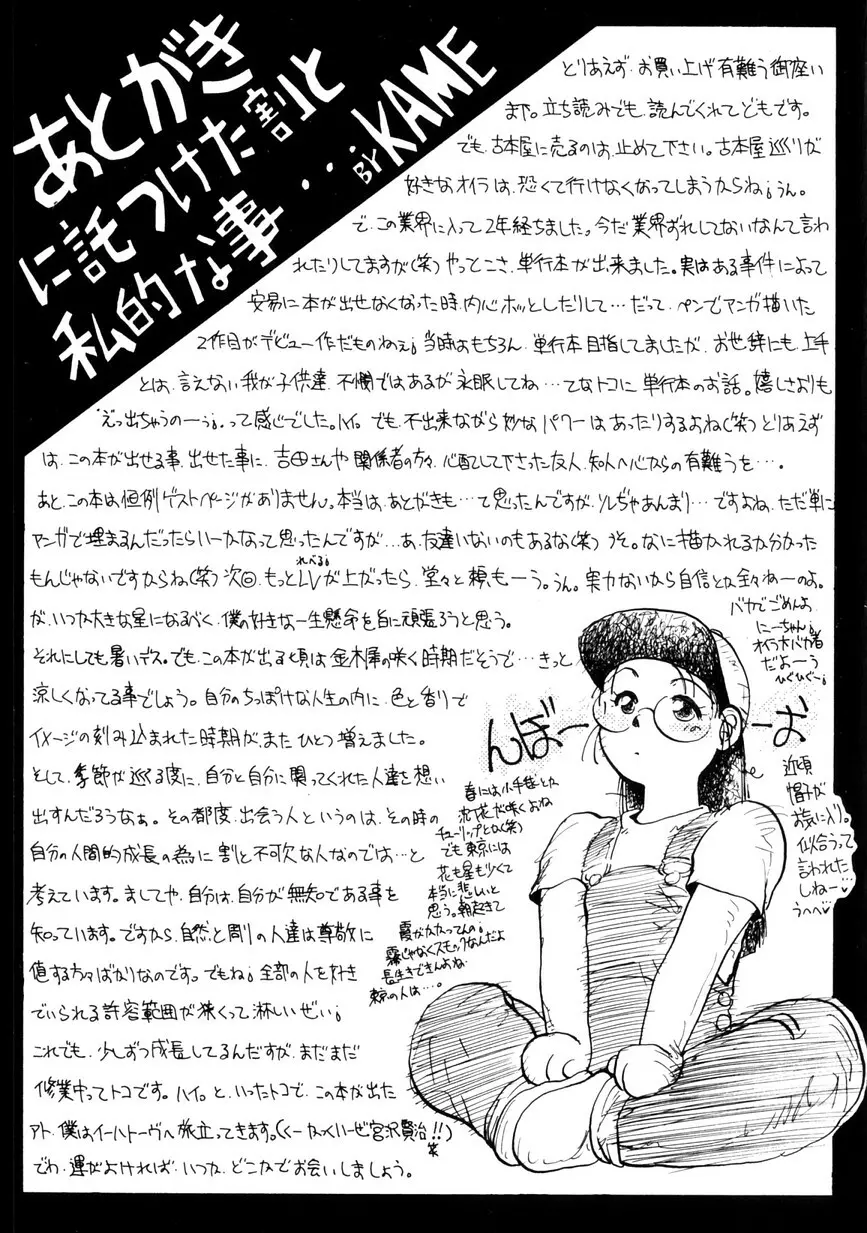 あとがき
に託つけた割と
私的な事・・・
BY KAME
とりあえず、お買い上げ有難う御座い
ます。立ち読みでも、読んでくれてどもです。
でも、古本屋に売るのは、止めて下さい。古本屋巡りが
好きなオイラは、恐くて行けなくなってしまうからね¡うん。
で、この業界に入って2年経ちました。今だ業界ずれしてないなんて言わ
れたりしてますが(笑)やっとこさ、単行本が出来ました。実はある事件によって
安易に本が出せなくなった時、内心ホッとしたりして…だって、ペンでマンガ描いた
2作目がデビュー作だものねぇ¡当時はもちろん、単行本目指してましたが、お世辞にも、上手
とは、言えない我が子供達、不憫ではあるが永眠してね…てなトコに、単行本のお話。嬉しさよりも
"えっ出ちゃうのーぅ¡"って感じでした。ハイ。でも、不出来ながら妙なパワーはあったりするよね(笑)とりあえず
は、この本が出せる事、出せた事に、吉田さんや関係者の方々、心配して下さった友人、知人へ心からの有難うを…。
あと、この本は恒例ゲストページがありません。本当は、あとがきも…て思ったんですが、ソレぢゃあんまり…ですよね、ただ単に
マンガで埋まるんだったらいーかなって思ったんですが…あ、友達いないのもあるな(笑)うそ。なに描かれるか分かった
もんじゃないですからね(笑)次回、もっとLV(れべる¡)が上がったら、堂々と頼もーう。うん。実力ないから自信とか全々ねーのよ。
が、いつか大きな星になるべく、僕の好きな一生懸命を旨に頑張ろうと思う。
それにしても暑いデス。でも、この本が出る頃は金木犀の咲く時期だそうで…きっと
涼しくなってる事でしょう。自分のちっぽけな人生の内に、色と香りで
イメージの刻み込まれた時期が、またひとつ増えました。
そして、季節が巡る度に、自分と自分に関ってくれた人達を想い
出すんだろうなぁ。その都度、出会う人というのは、その時の
自分の人間的成長の為に割と不可欠な人なのでは…と
考えています。ましてや、自分は、自分が無知である事を
知っています。ですから、自然と周りの人達は尊敬に
値する方々ばかりなのです。でもね¡全部の人を好き
でいられる許容範囲が狭くって淋しいぜい¡
これでも、少しずつ成長してるんだすが、まだまだ
修業中ってトコです。ハイ。と、いったトコで、この本が出た
アト、僕はイーハトーヴへ旅立ってきます。(くーかっくいーぜ宮沢賢治!!)
でわ、運がよければ、いつか、どこかでお会いしましょう。
バカでごめんよ
にーちゃん¡
オイラ大バカ者
だよーう
ひぐひぐー¡
おーんぼー
近頃
帽子が
お気に入り。
似合うって
言われた
しねー♡
うへへ♡
春には小手毬とか
沈丁花が咲くよね
チューリップとか(笑)
でも東京には
花も星も少くて
本当に悲しいと
思う。朝起きて
霞がかかってんの¡
霧じゃなくスモッグなんだよ
長生きできんよね
東京の人は…。